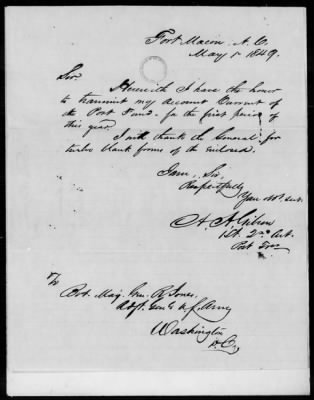 Fort Macon, N. C.
May 1 1849.
Sir
Herewith I have the honor
to transmit my Account Current of
the Post Fund for the first period of
this year.
I will thank the General for
twelve blank forms of the enclosed.
I am, Sir,
Respectfully
Your Obt. Servt.
A. A. Gibson
1 Lt. 2nd Art.
Post Trea
To
Bvt. Maj. Gen. R. Jones.
Adjt. Genl. U. S. Army
Washington
D. C.